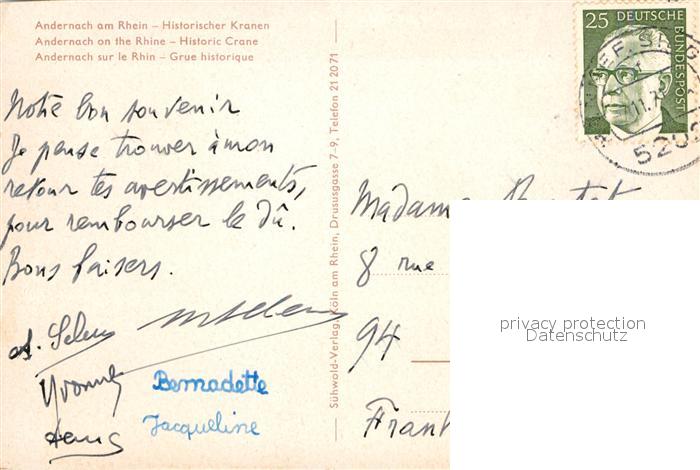 Andernach am Rhein – Historischer Kranen
Andernach on the Rhine – Historic Crane
Andernach sur le Rhin – Grue historique
25 DEUTSCHE BUNDESPOST
520
Notre bon souvenir
Je pense trouver à mon
retour tes avertissements,
pour rembourser le dû.
Bons baisers.
Yvonne
Bernadette
Jacqueline
Sühwold-Verlag, Köln am Rhein, Drususgasse 7–9, Telefon 21 20 71
Madame
8 rue
94
privacy protection
Datenschutz